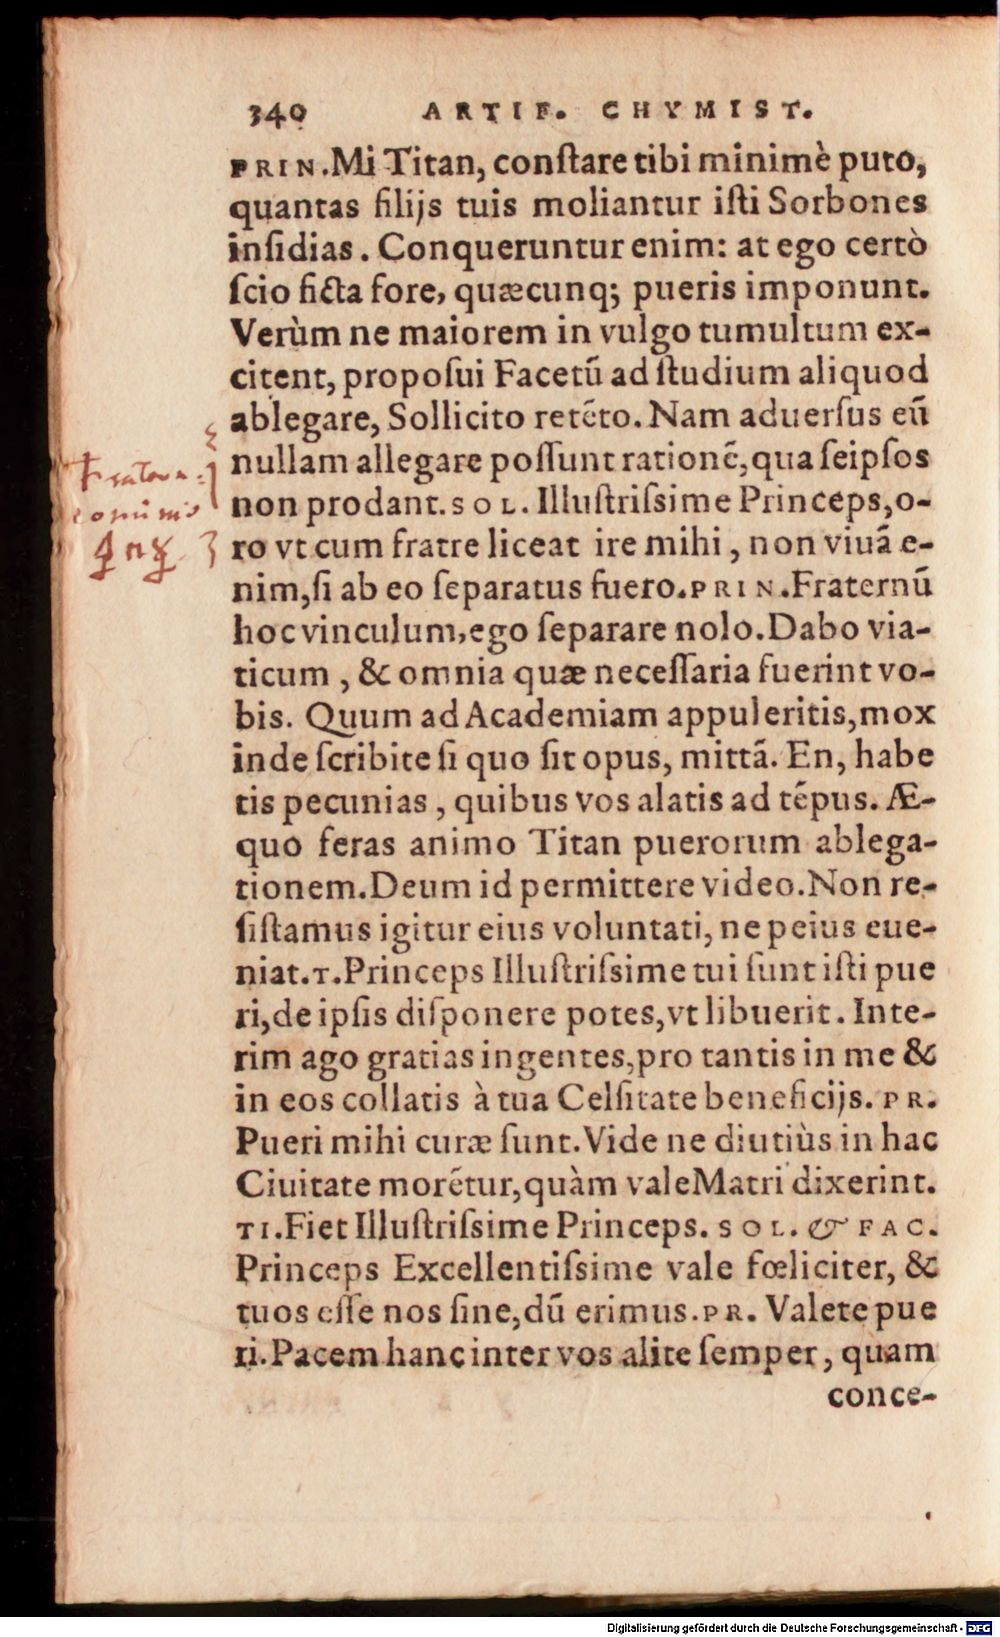 340 ARTIF. CHYMIST.
PRIN. Mi Titan, conſtare tibi minimè puto,
quantas filijs tuis moliantur iſti Sorbones
inſidias. Conqueruntur enim: at ego certò
ſcio ficta fore, quæcunq; pueris imponunt.
Verùm ne maiorem in vulgo tumultum ex-
citent, propoſui Facetũ ad ſtudium aliquod
ablegare, Sollicito retẽto. Nam aduerſus eũ
nullam allegare poſſunt rationẽ, qua ſeipſos
non prodant. SOL. Illuſtriſsime Princeps, o-
ro vt cum fratre liceat ire mihi, non viuã e-
nim, ſi ab eo ſeparatus fuero. PRIN. Fraternũ
hoc vinculum, ego ſeparare nolo. Dabo via-
ticum, & omnia quæ neceſſaria fuerint vo-
bis. Quum ad Academiam appuleritis, mox
inde ſcribite ſi quo ſit opus, mittã. En, habe
tis pecunias, quibus vos alatis ad tẽpus. Æ-
quo feras animo Titan puerorum ablega-
tionem. Deum id permittere video. Non re-
ſiſtamus igitur eius voluntati, ne peius eue-
niat. T. Princeps Illuſtriſsime tui ſunt iſti pue
ri, de ipſis diſponere potes, vt libuerit. Inte-
rim ago gratias ingentes, pro tantis in me &
in eos collatis à tua Celſitate beneficijs. PR.
Pueri mihi curæ ſunt. Vide ne diutiùs in hac
Ciuitate morẽtur, quàm vale Matri dixerint.
TI. Fiet Illuſtriſsime Princeps. SOL. & FAC.
Princeps Excellentiſsime vale fœliciter, &
tuos eſſe nos ſine, dũ erimus. PR. Valete pue
ri. Pacem hanc inter vos alite ſemper, quam
conce-
Digitalisierung gefördert durch die Deutsche Forschungsgemeinschaft - DFG